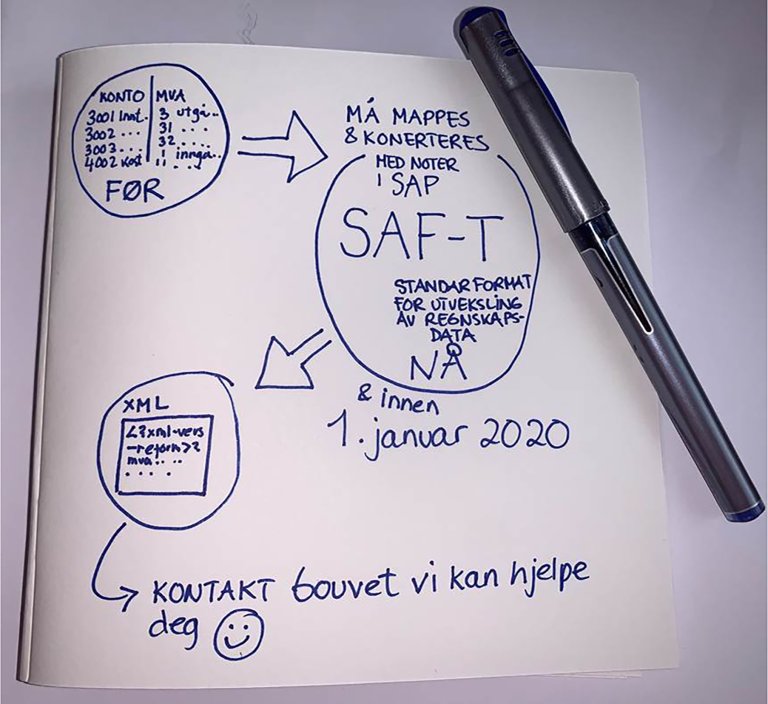 KONTO | MVA
3001 Innt. 3 utgå..
3002 ... 31 ...
3003 ... 32 ....
4002 Kost 1 innga..
11 ...
FØR
MÅ MAPPES
& KONERTERES
MED NOTER
I SAP
SAF-T
STANDARFORMAT
FOR UTVEKSLING
AV REGNSKAPS-
DATA
NÅ
& innen
1. januar 2020
XML
<?xml-vers
-reform>?
mva.. ..
. . . .
KONTAKT bouvet vi kan hjelpe
deg